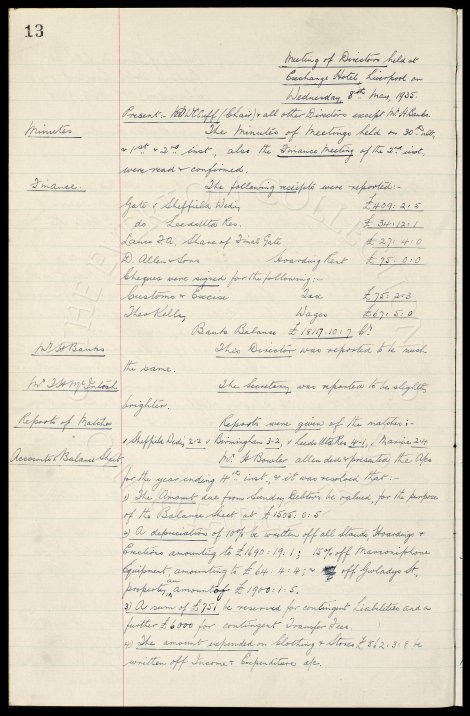 13
Meeting of Directors held at
Exchange Hotel, Liverpool on
Wednesday 8th May, 1935.
Present:- Cuff (Chair) & all other Directors except Mr H. Banks.
Minutes
The Minutes of Meetings held on 30th ult,
& 1st & 2nd inst, also the Finance Meeting of the 2nd inst,
were read & confirmed.
Finance.
The following receipts were reported:-
Gate v Sheffield Wedy £409.2.5
do Leeds Utd Res. £34.12.1
Lancs F.A. Share of Final Gate £27.4.0
D. Allen & Sons Hoarding Rent £75.0.0
Cheques were signed for the following:-
Customs & Excise Tax £75.2.3
Theo Kelly Wages £67.5.0
Bank Balance £1819.10.7
Mr H Banks
This Director was reported to be much
the same.
Mr McIntosh
The Secretary was reported to be slightly
brighter.
Reports of Matches
Reports were given of the matches:-
v Sheffield Wedy, 2-2 v Birmingham 3-2, v Leeds Utd Res 4-1, v Marine 2-4
Accounts & Balance Sheet.
Mr H Bowler attended & presented the A/cs
for the year ending 4th inst, & it was resolved that:-
1) The Amount due from Sundry Debtors be valued, for the purpose
of the Balance Sheet at £1505.0.5
2) A depreciation of 10% be written off all Stands Hoardings &
Erections amounting to £1690.19.1; 15% off
Equipment, amounting to £64.4.4; & off Gwladys St.,
property, an amount of £1900.1.5.
3) A sum of £751 be reserved for contingent Liabilities and a
further £6000 for contingent Transfer Fees.
4) The amount expended on Clothing & Stores £862.3.8 be
written off Income & Expenditure a/c.